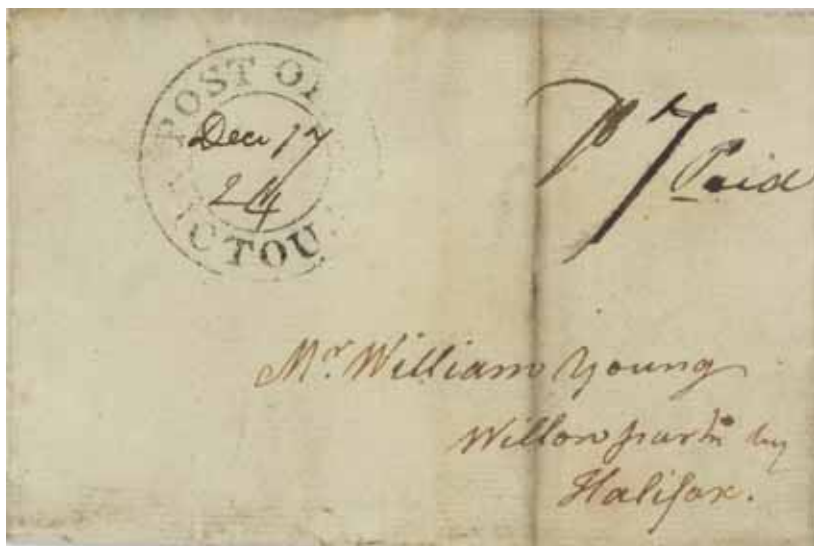 POST OF
Dec 17
24
ICTOU
p 7 Paid
Mr. William Young
Willow park by
Halifax.